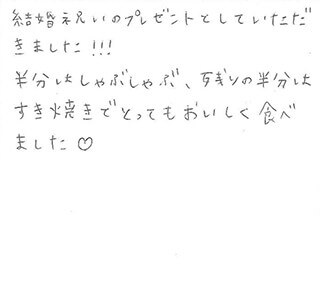 結婚祝いのプレゼントとしていただ
きました!!!
半分はしゃぶしゃぶ、残りの半分は
すき焼きでとってもおいしく食べ
ました♡